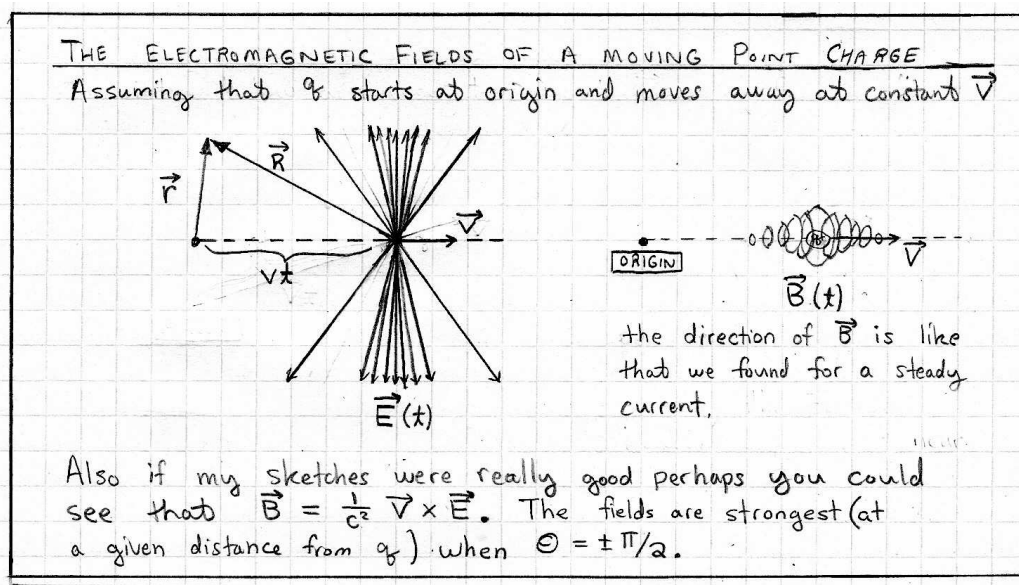 THE ELECTROMAGNETIC FIELDS OF A MOVING POINT CHARGE
Assuming that q starts at origin and moves away at constant V⃗
R⃗
r⃗
V⃗
Vt
E⃗(t)
ORIGIN
V⃗
B⃗(t)
the direction of B⃗ is like
that we found for a steady
current.
Also if my sketches were really good perhaps you could
see that B⃗ = 1/c² V⃗ × E⃗. The fields are strongest (at
a given distance from q) when Θ = ± π/2.